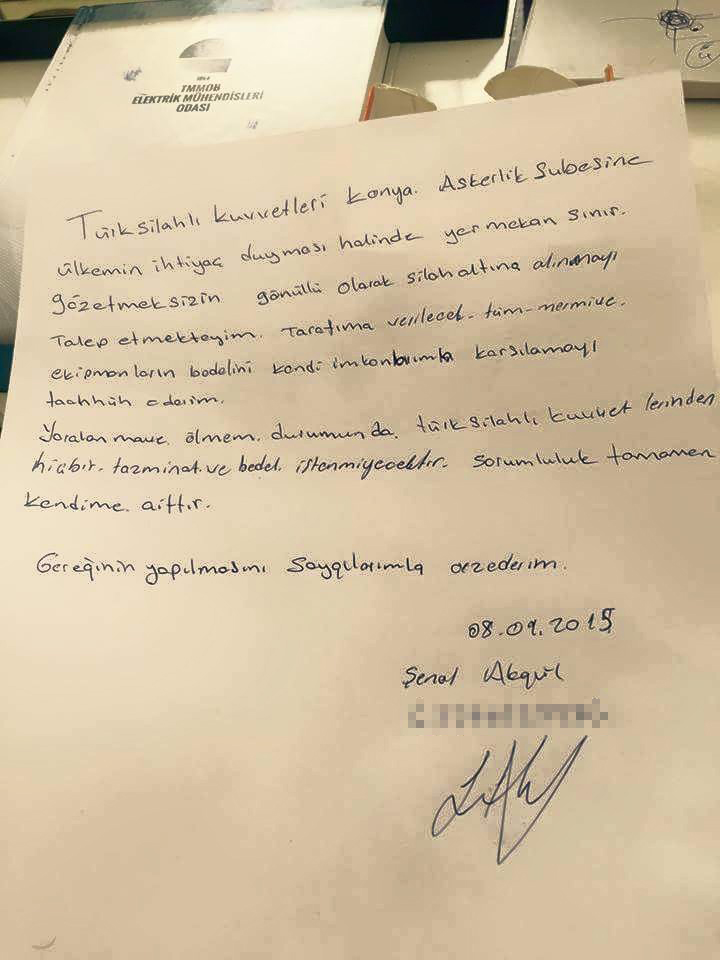 1954
TMMOB
ELEKTRİK MÜHENDİSLERİ
ODASI
Türk silahlı kuvvetleri konya. Askerlik Şubesine
ülkemin ihtiyaç duyması halinde yer mekan sınır.
gözetmeksizin gönüllü olarak silah altına alınmayı
Talep etmekteyim. Tarafıma verilecek. tüm mermi ve.
ekipmanların bedelini kendi imkanlarımla karşılamayı
taahhüh ederim.
Yaralanma ve. ölmem. durumunda. türk silahlı kuvvetlerinden
hiçbir. tazminat ve bedel. istenmiyecektir. sorumluluk tamamen
kendime. aittir.
Gereğinin yapılmasını saygılarımla arzederim.
08.09.2015
Şenol Akgül